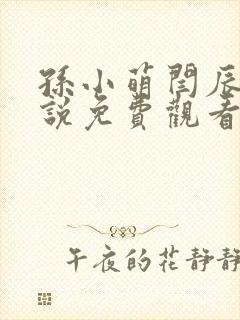 孫小萌閆辰
說免費觀看
午夜的花靜靜